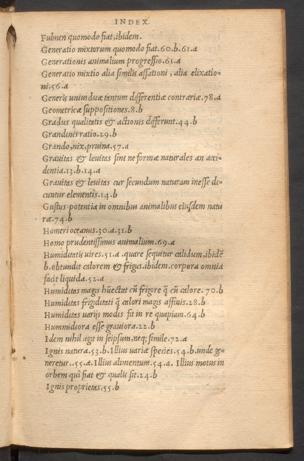 INDEX.
Fulmen quomodo fiat, ibidem.
Generatio mixtorum quomodo fiat.60.b.61.a
Generationis animalium progressio.61.a
Generatio mixtio alia similis assationi, alia elixatio-
ni.56.a
Generis unius duæ tantum differentiæ contrariæ.78.a
Geometricæ suppositiones.8.b
Gradus qualitatis & actionis differunt.44.b
Grandinis ratio.29.b
Grando, nix, pruina.57.a
Grauitas & leuitas sint ne formæ naturales an acci-
dentia.13.b.14.a
Grauitas & leuitas cur secundum naturam inesse di-
cuntur elementis.14.b
Gustus potentia in omnibus animalibus eiusdem natu
ræ.74.b
Homeri oceanus.30.a.31.b
Homo prudentissimus animalium.69.a
Humiditatis uires.51.a .quare sequitur calidum.ibidē
b.obtundit calorem & frigus.ibidem.corpora omnia
facit liquida.52.a
Humiditas magis hūectat cū frigore q̄ cū calore.70.b
Humiditas frigiditati q̄ calori magis affinis.28.b
Humiditas uarijs modis fit in re quapiam.64.b
Hummidiora esse grauiora.22.b
Idem nihil agit in seipsum.neq; simile.72.a
Ignis natura.53.b.Illius uariæ species.54.b.unde ge-
neretur..55.a.Illius alimentum.54.a. Illius motus in
orbem qui fiat & qualis sit.24.b
Ignis proprietates.55.b